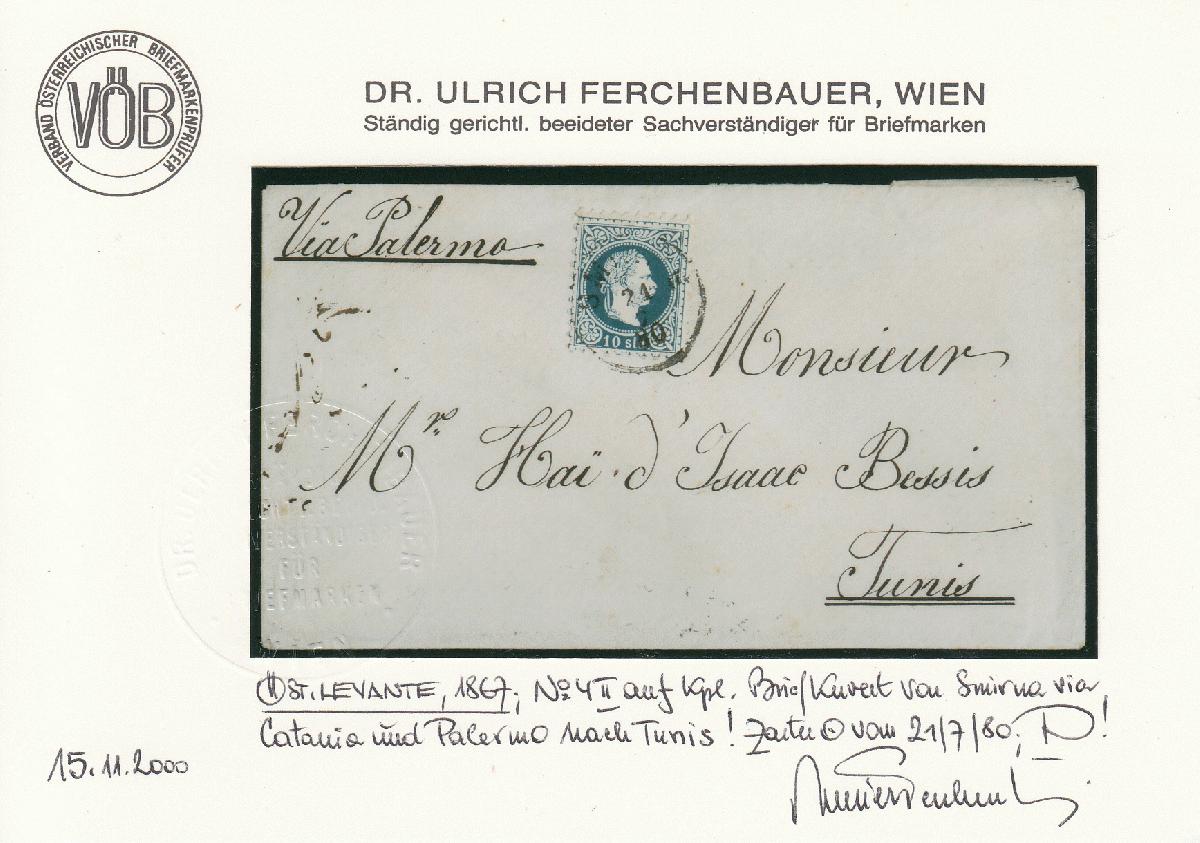 VERBAND ÖSTERREICHISCHER BRIEFMARKENPRÜFER
VÖB
DR. ULRICH FERCHENBAUER, WIEN
Ständig gerichtl. beeideter Sachverständiger für Briefmarken
Via Palermo
SM
21
80
10 sld
Monsieur
Mr. Haï d'Isaac Bessis
Tunis
DR. ULR
FERCH
AUER
VERSTÄNDIGER
FÜR
EFMARKEN
WIEN
ÖST. LEVANTE, 1867; No 4 II auf kpl. Briefkuvert von Smirna via
Catania und Palermo nach Tunis! Zarter vom 21/7/80;
15.11.2000